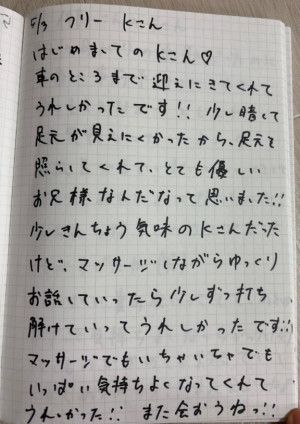 5/3 フリー Kさん
はじめましてのKさん♡
車のところまで迎えにきてくれて
うれしかったです!! 少し暗くて
足元が見えにくかったから、足元を
照らしてくれて、とても優しい
お兄様なんだなって思いました!!
少しきんちょう気味のKさんだった
けど、マッサージしながらゆっくり
お話していったら少しずつ打ち
解けていってうれしかったです!!
マッサージでもいちゃいちゃでも
いっぱい気持ちよくなってくれて
うれしかった!! また会おうねっ!!